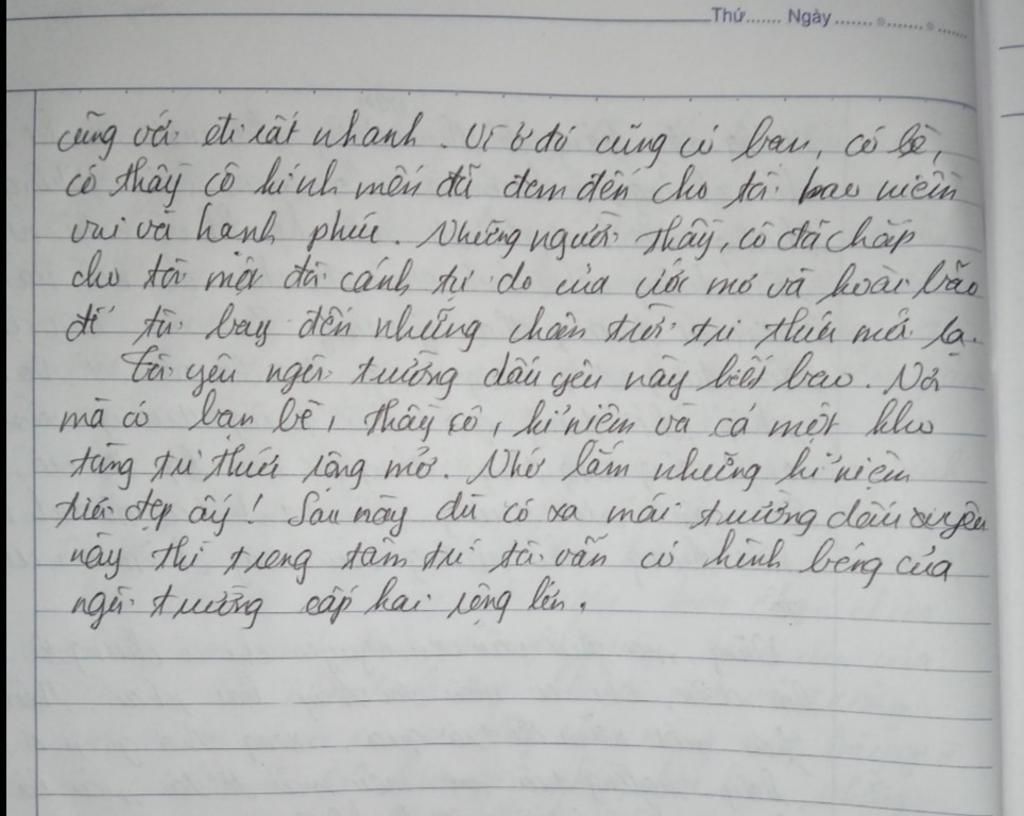 Thứ....... Ngày.......
cũng với đi rất nhanh. Vì ở đó cũng có bạn, có bè,
có thầy cô kính mến đã đem đến cho tôi bao niềm
vui và hạnh phúc. Những người thầy, cô đã chắp
cho tôi một đôi cánh tự do của ước mơ và hoài bão
để tôi bay đến những chân trời tri thức mới lạ.
Tôi yêu ngôi trường dấu yêu này biết bao. Nơi
mà có bạn bè, thầy cô, kỉ niệm và cả một kho
tàng tri thức rộng mở. Nhớ lắm những kỉ niệm
tươi đẹp ấy! Sau này dù có xa mái trường dấu yêu
này thì trong tâm trí tôi vẫn có hình bóng của
ngôi trường cấp hai rộng lớn.